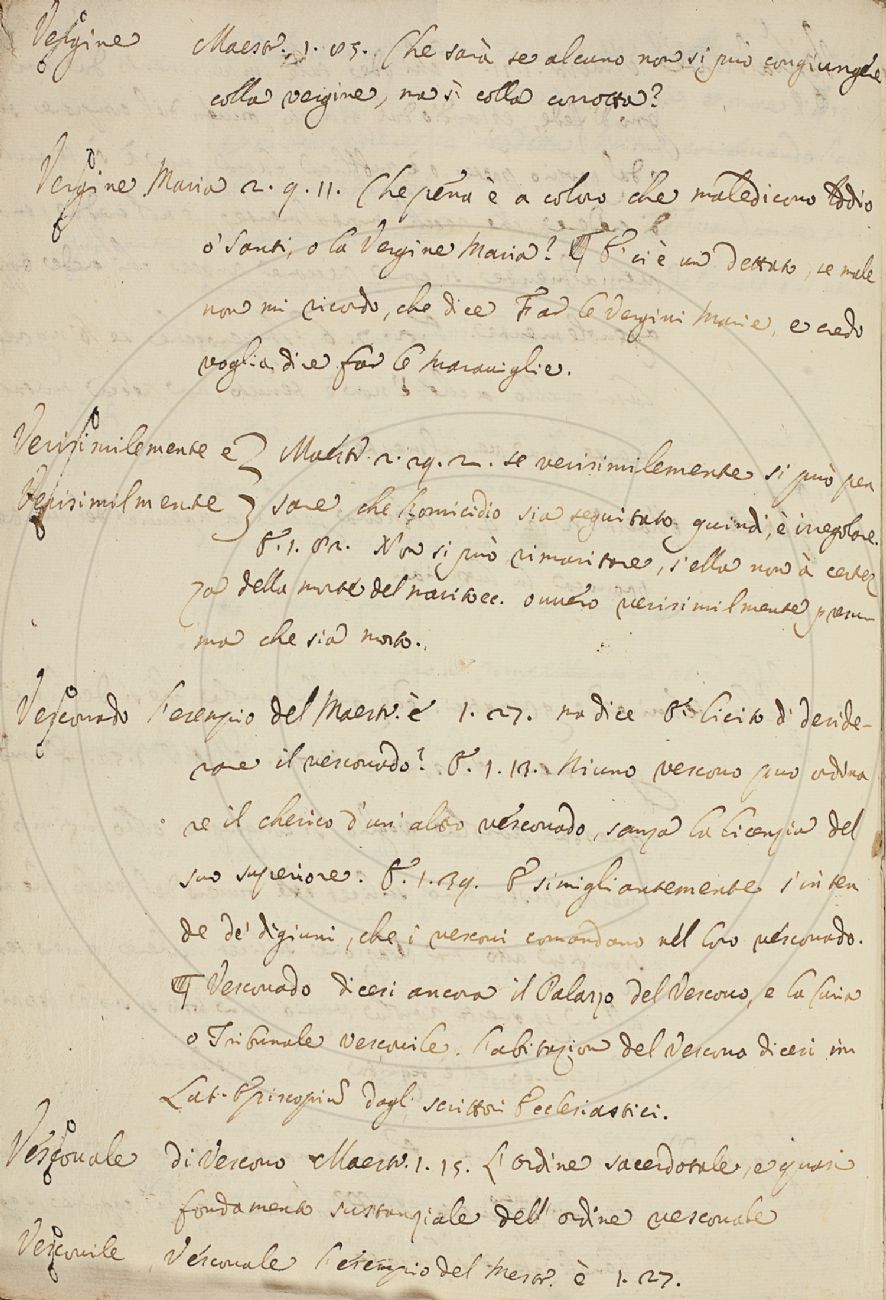 Vergine Maestr. 1. 85. Che sarà se alcuno non si può congiungere
colla vergine, ma sì colla corrotta?
Vergine Maria 2. 9. 11. Che pena è a coloro che maledicono Iddio
o' Santi, o la Vergine Maria? ¶ E' ci è un dettato, se male
non mi ricordo, che dice Far le Vergini Marie, e credo
voglia dire far le maraviglie.
Verisimilemente e } Maestr. 2. 29. 2. se verisimilemente si può pen
Verisimilmente } sare che homicidio sia seguitato quindi, è irregolare.
E. 1. 82. Non si può rimaritare, s'ella non à certez
za della morte del marito ec. ovvero verisimilmente presu-
ma che sia morto.
Vescovado L'esempio del Maestr. è 1. 27. ma dice E' licito di deside-
rare il vescovado? E. 1. 13. Niuno vescovo può ordina
re il cherico d'un' altro vescovado, sanza la licenzia del
suo superiore. E. 1. 39. E simigliantemente s'inten
de de' digiuni, che i vescovi comandano nel loro vescovado.
¶ Vescovado dicesi ancora il Palazzo del Vescovo, e la Curia
o Tribunale vescovile. L'abitazion del Vescovo dicesi in
Lat. Episcopiũ dagli scrittori Ecclesiastici.
Vescovale di Vescovo Maestr. 1. 15. L'ordine sacerdotale, e quasi
fondamento sustanziale dell' ordine vescovale
Vescovile, Vescovale L'esempio del Mestr. è 1. 27.